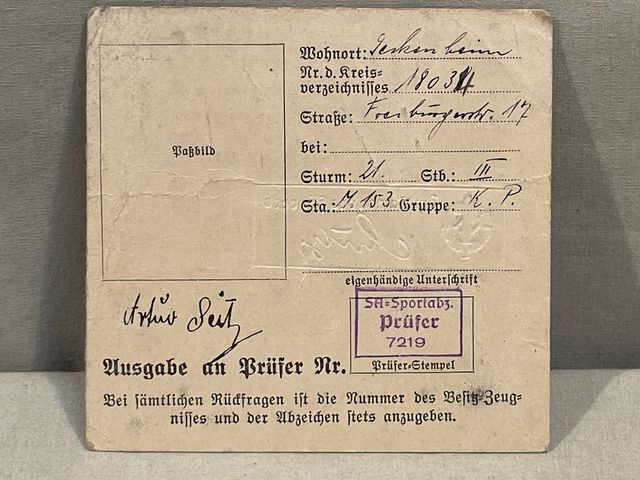 Wohnort:
Nr. d. Kreis-
verzeichnisses 18034
Straße: Freiburgerstr. 17
Paßbild
bei:
Sturm: 21. Stb.: III
Sta.: M 153 Gruppe: K. P.
eigenhändige Unterschrift
Artur Seitz
SA-Sportabz.
Prüfer
7219
Ausgabe an Prüfer Nr.
Prüfer-Stempel
Bei sämtlichen Rückfragen ist die Nummer des Besitz-Zeug-
nisses und der Abzeichen stets anzugeben.